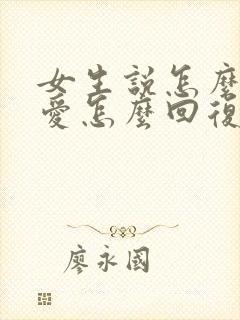 女生說怎麼
愛怎麼回復
廖永國